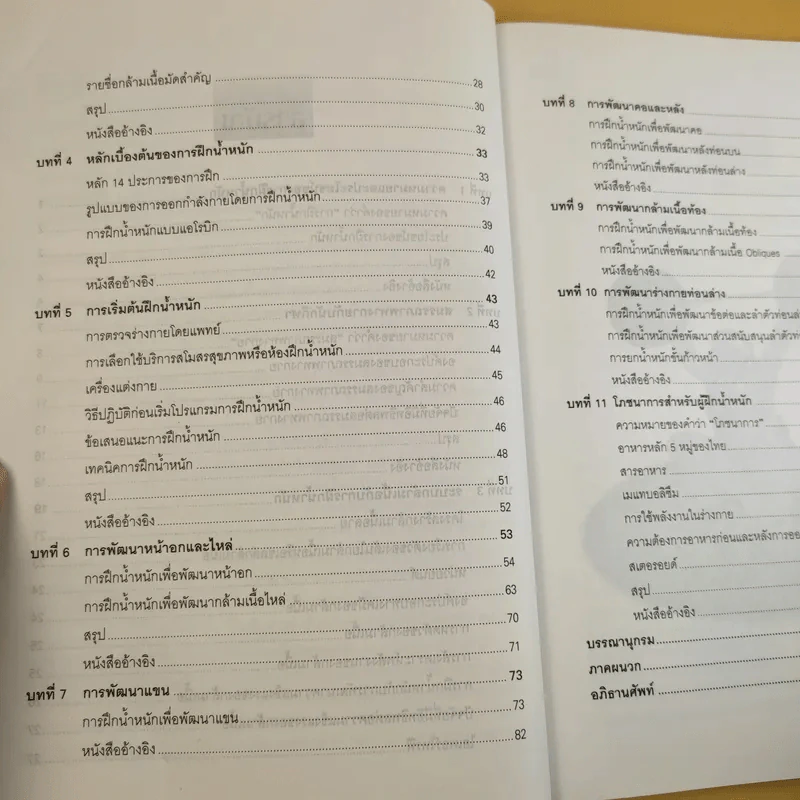 รายชื่อกล้ามเนื้อมัดสำคัญ 28
สรุป 30
หนังสืออ้างอิง 32
บทที่ 4 หลักเบื้องต้นของการฝึกน้ำหนัก 33
หลัก 14 ประการของการฝึก 33
รูปแบบของการออกกำลังกายโดยการฝึกน้ำหนัก 37
การฝึกน้ำหนักแบบแอโรบิก 39
สรุป 40
หนังสืออ้างอิง 42
บทที่ 5 การเริ่มต้นฝึกน้ำหนัก 43
การตรวจร่างกายโดยแพทย์ 43
การเลือกใช้บริการสโมสรสุขภาพหรือห้องฝึกน้ำหนัก 44
เครื่องแต่งกาย 45
วิธีปฏิบัติก่อนเริ่มโปรแกรมการฝึกน้ำหนัก 46
ข้อเสนอแนะการฝึกน้ำหนัก 46
เทคนิคการฝึกน้ำหนัก 48
สรุป 51
หนังสืออ้างอิง 52
บทที่ 6 การพัฒนาหน้าอกและไหล่ 53
การฝึกน้ำหนักเพื่อพัฒนาหน้าอก 54
การฝึกน้ำหนักเพื่อพัฒนากล้ามเนื้อไหล่ 63
สรุป 70
หนังสืออ้างอิง 71
บทที่ 7 การพัฒนาแขน 73
การฝึกน้ำหนักเพื่อพัฒนาแขน 73
หนังสืออ้างอิง 82
บทที่ 8 การพัฒนาคอและหลัง
การฝึกน้ำหนักเพื่อพัฒนาคอ
การฝึกน้ำหนักเพื่อพัฒนาหลังท่อนบน
การฝึกน้ำหนักเพื่อพัฒนาหลังท่อนล่าง
หนังสืออ้างอิง
บทที่ 9 การพัฒนากล้ามเนื้อท้อง
การฝึกน้ำหนักเพื่อพัฒนากล้ามเนื้อท้อง
การฝึกน้ำหนักเพื่อพัฒนากล้ามเนื้อ Obliques
หนังสืออ้างอิง
บทที่ 10 การพัฒนาร่างกายท่อนล่าง
การฝึกน้ำหนักเพื่อพัฒนาข้อต่อและลำตัวท่อนล่
การฝึกน้ำหนักเพื่อพัฒนาส่วนสนับสนุนลำตัวท่
การยกน้ำหนักขั้นก้าวหน้า
หนังสืออ้างอิง
บทที่ 11 โภชนาการสำหรับผู้ฝึกน้ำหนัก
ความหมายของคำว่า "โภชนาการ"
อาหารหลัก 5 หมู่ของไทย
สารอาหาร
เมแทบอลิซึม
การใช้พลังงานในร่างกาย
ความต้องการอาหารก่อนและหลังการออ
สเตอรอยด์
สรุป
หนังสืออ้างอิง
บรรณานุกรม
ภาคผนวก
อภิธานศัพท์